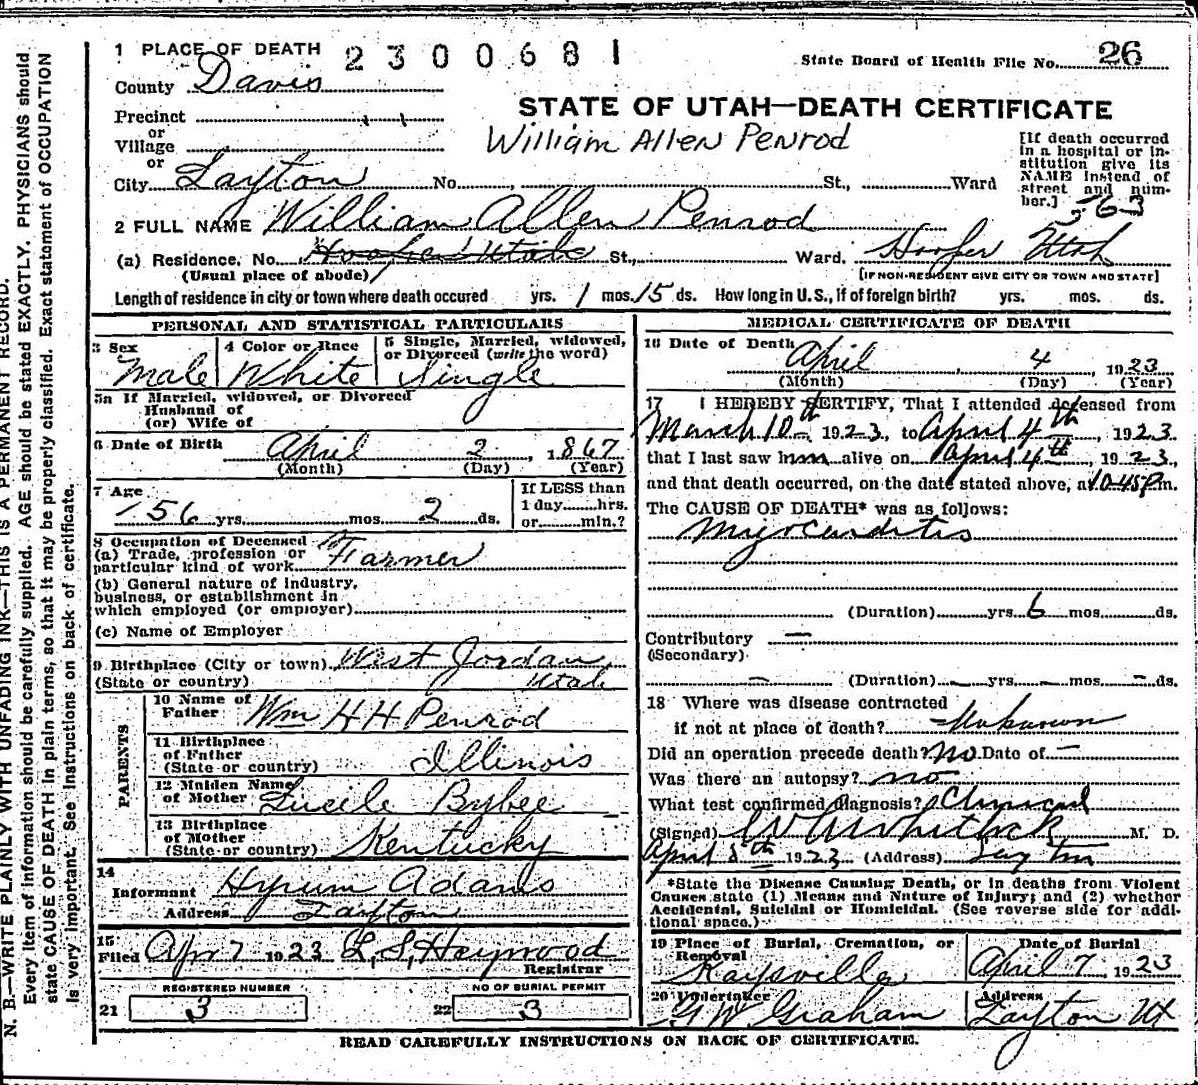 1 PLACE OF DEATH 2300681
State Board of Health File No. 26
County Davis
STATE OF UTAH—DEATH CERTIFICATE
Precinct
or
William Allen Penrod
Village
or
[If death occurred
in a hospital or in-
stitution give its
NAME instead of
street and num-
ber.]
City Layton No. , St., Ward
2 FULL NAME William Allen Penrod
(a) Residence, No. Hooper Utah St., Ward, Hooper Utah
(Usual place of abode) [IF NON-RESIDENT GIVE CITY OR TOWN AND STATE]
Length of residence in city or town where death occured yrs. 1 mos. 15 ds. How long in U. S., if of foreign birth? yrs. mos. ds.
PERSONAL AND STATISTICAL PARTICULARS
3 Sex
Male
4 Color or Race
White
5 Single, Married, widowed,
or Divorced (write the word)
Single
5a If Married, widowed, or Divorced
Husband of
(or) Wife of
6 Date of Birth April 2, 1867
(Month) (Day) (Year)
7 Age
56 yrs. mos. 2 ds.
If LESS than
1 day hrs.
or min.?
8 Occupation of Deceased
(a) Trade, profession or
particular kind of work Farmer
(b) General nature of industry,
business, or establishment in
which employed (or employer)
(c) Name of Employer
9 Birthplace (City or town) West Jordan
(State or country) Utah
PARENTS
10 Name of
Father Wm H H Penrod
11 Birthplace
of Father
(State or country) Illinois
12 Maiden Name
of Mother Lucele Bybee
13 Birthplace
of Mother
(State or country) Kentucky
14
Informant Hyrum Adams
Address Layton
15
Filed Apr 7 1923 L, S, Heywood
Registrar
REGISTERED NUMBER
21 3
NO OF BURIAL PERMIT
22 3
MEDICAL CERTIFICATE OF DEATH
16 Date of Death April, 4, 1923
(Month) (Day) (Year)
17 I HEREBY CERTIFY, That I attended deceased from
March 10th, 1923, to April 4th, 1923
that I last saw him alive on April 4th, 1923,
and that death occurred, on the date stated above, at 10-45P.m.
The CAUSE OF DEATH* was as follows:
Myocarditis
(Duration) yrs. 6 mos. ds.
Contributory —
(Secondary)
— (Duration) — yrs. — mos. — ds.
18 Where was disease contracted
if not at place of death? Unknown
Did an operation precede death? no Date of —
Was there an autopsy? no
What test confirmed diagnosis? Clinical
(Signed) Whitlock M. D.
April 1923 (Address) Layton
*State the Disease Causing Death, or in deaths from Violent
Causes state (1) Means and Nature of Injury; and (2) whether
Accidental, Suicidal or Homicidal. (See reverse side for addi-
tional space.)
19 Place of Burial, Cremation, or
Removal
Kaysville
Date of Burial
April 7, 1923
20 Undertaker
G W Graham
Address
Layton Ut
READ CAREFULLY INSTRUCTIONS ON BACK OF CERTIFICATE.
N. B.—WRITE PLAINLY WITH UNFADING INK—THIS IS A PERMANENT RECORD.
Every item of information should be carefully supplied. AGE should be stated EXACTLY. PHYSICIANS should
state CAUSE OF DEATH in plain terms, so that it may be properly classified. Exact statement of OCCUPATION
is very important. See instructions on back of certificate.